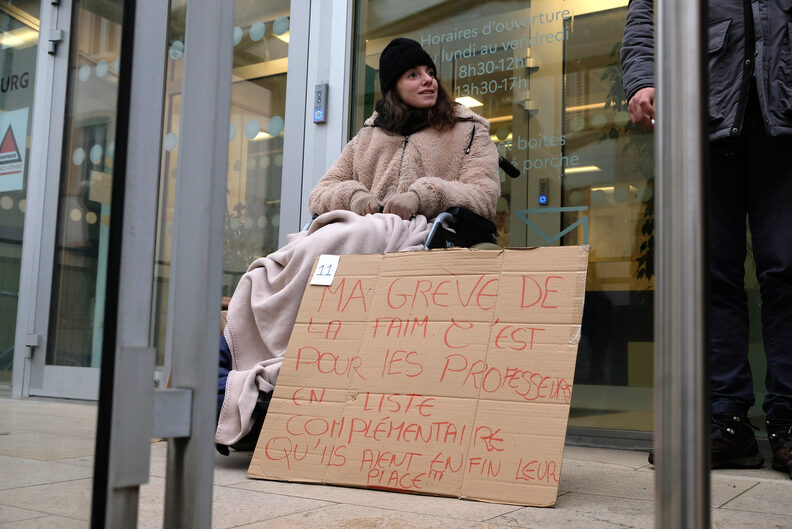 URG
Horaires d'ouverture
lundi au vendredi
8h30-12h
13h30-17h
boites
porche
11
MA GRÈVE DE
LA FAIM. C'EST
POUR LES PROFESSEURS
EN LISTE
COMPLÉMENTAIRE
QU'ILS AIENT ENFIN LEUR
PLACE!!!